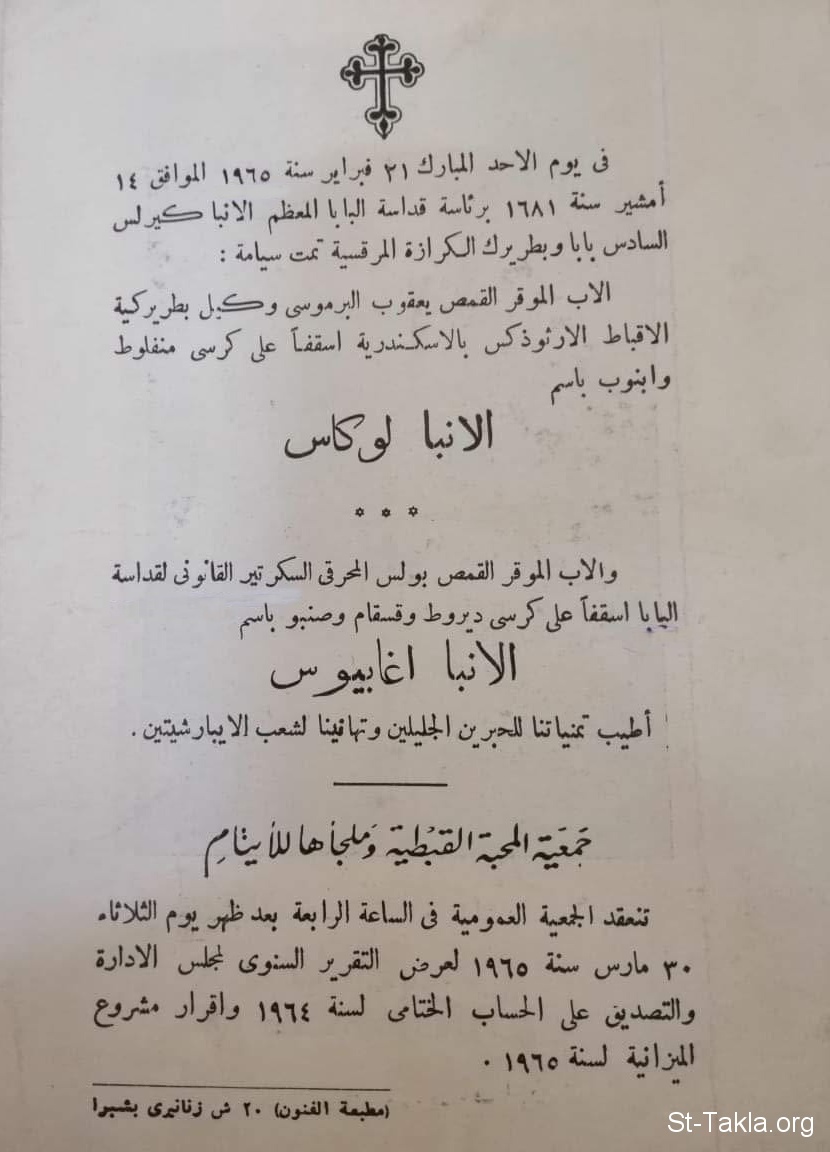 فى يوم الاحد المبارك ٢١ فبراير سنة ١٩٦٥ الموافق ١٤
أمشير سنة ١٦٨١ برئاسة قداسة البابا المعظم الانبا كيرلس
السادس بابا وبطريرك الكرازة المرقسية تمت سيامة :
الاب الموقر القمص يعقوب البرموسى وكيل بطريركية
الاقباط الارثوذكس بالاسكندرية اسقفاً على كرسى منفلوط
وابنوب باسم
الانبا لوكاس
* * *
والاب الموقر القمص بولس المحرقى السكرتير القانونى لقداسة
البابا اسقفاً على كرسى ديروط وقسقام وصنبو باسم
الانبا اغابيوس
أطيب تمنياتنا للحبرين الجليلين وتهانينا لشعب الايبارشيتين .
جَمعَية المحبة القبْطية وَملجأها للأيتامِ
تنعقد الجمعية العمومية فى الساعة الرابعة بعد ظهر يوم الثلاثاء
٣٠ مارس سنة ١٩٦٥ لعرض التقرير السنوى لمجلس الادارة
والتصديق على الحساب الختامى لسنة ١٩٦٤ واقرار مشروع
الميزانية لسنة ١٩٦٥ .
(مطبعة الفنون) ٢٠ ش زنانيرى بشبرا
St-Takla.org